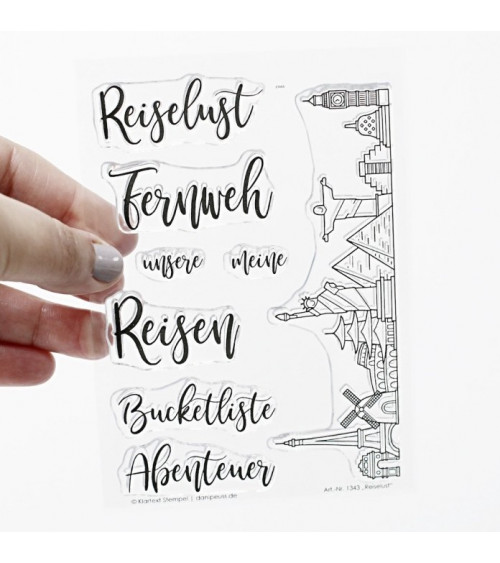 Reiselust
Fernweh
unsere meine
Reisen
Bucketliste
Abenteuer
© Klartext Stempel | danipeuss.de
Art.-Nr. 1343 „Reiselust“